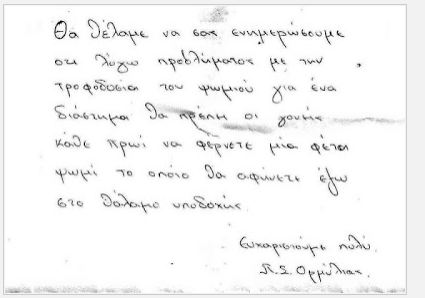 Θα θέλαμε να σας ενημερώσουμε
ότι λόγω προβλήματος με την
τροφοδοσία του ψωμιού για ένα
διάστημα θα πρέπει οι γονείς
κάθε πρωί να φέρνετε μία φέτα
ψωμί το οποίο θα αφήνετε έξω
στο θάλαμο υποδοχής.
Ευχαριστούμε πολύ.
Π.Σ. Ορμύλιας.